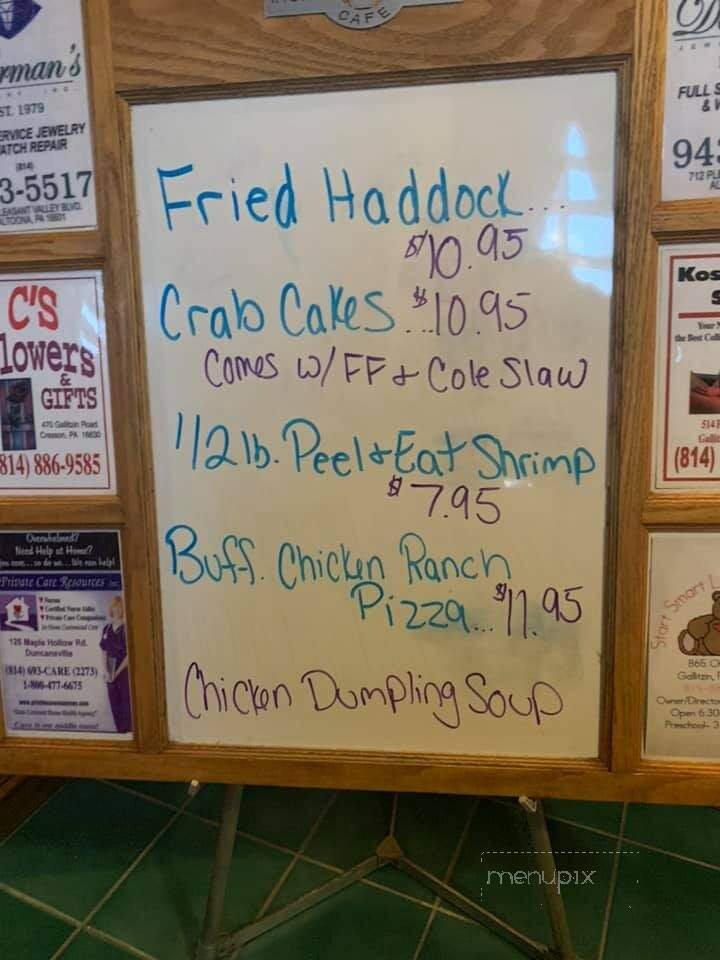 CAFE
rman's
EST. 1979
SERVICE JEWELRY
WATCH REPAIR
(814)
3-5517
PLEASANT VALLEY BLVD.
ALTOONA, PA 16601
C'S
lowers
&
GIFTS
470 Gallitzin Road
Cresson, PA 16630
814) 886-9585
Overwhelmed?
Need Help at Home?
Private Care Resources Inc.
125 Maple Hollow Rd.
Duncansville
(814) 693-CARE (2273)
1-800-477-6675
Fried Haddock...
$10.95
Crab Cakes...$10.95
Comes w/ FF & Cole Slaw
1/2 lb. Peel & Eat Shrimp
$7.95
Buff. Chicken Ranch
Pizza...$11.95
Chicken Dumpling Soup
FULL S
& W
943
712 PL
Kos
S
Your
the Best Coll
514
Galli
(814)
Start Smart L
865 C
Gallitzin,
Owner/Director
Open 6:30
Preschool- 3
menupix